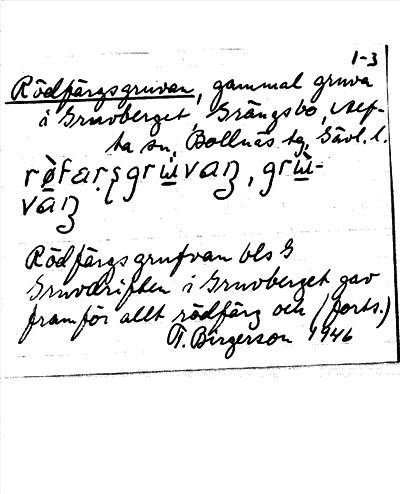 1-3
Rödfärgsgruvan, gammal gruva
i Gruvberget, Grängsbo, Alf-
ta sn, Bollnäs tg, Gävl. l.
Rödfärgsgrufvan bls G
Gruvdriften i Gruvberget gav
framför allt rödfärg och (forts.)
T. Birgerson 1946